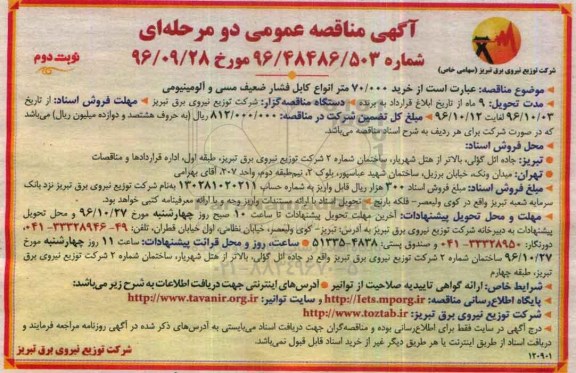 آگهی مناقصه عمومی دو مرحله‌ای
شماره ۹۶/۴۸۴۸۶/۵۰۳ مورخ ۹۶/۰۹/۲۸
نوبت دوم
شرکت توزیع نیروی برق تبریز (سهامی خاص)
موضوع مناقصه: عبارت است از خرید ۷۰/۰۰۰ متر انواع کابل فشار ضعیف مسی و آلومینیومی
مدت تحویل: ۹ ماه از تاریخ ابلاغ قرارداد به برنده دستگاه مناقصه‌گزار: شرکت توزیع نیروی برق تبریز مهلت فروش اسناد: از تاریخ
۹۶/۱۰/۰۳ لغایت ۹۶/۱۰/۱۲ مبلغ کل تضمین شرکت در مناقصه: ۸۱۲/۰۰۰/۰۰۰ ریال (به حروف هشتصد و دوازده میلیون ریال) می‌باشد
که در صورت شرکت برای هر ردیف به شرح اسناد مناقصه می‌باشد.
محل فروش اسناد:
تبریز: جاده ائل گؤلی، بالاتر از هتل شهریار، ساختمان شماره ۲ شرکت توزیع نیروی برق تبریز، طبقه اول، اداره قراردادها و مناقصات
تهران: میدان ونک، خیابان برزیل، ساختمان شهید عباسپور، بلوک ۲، نیم‌طبقه دوم، واحد ۲۰۷، آقای بهرامی
مبلغ فروش اسناد: مبلغ فروش اسناد ۳۰۰ هزار ریال قابل واریز به شماره حساب ۱۳۰۲۸۱۰۲۰۲۱۱ به‌نام شرکت توزیع نیروی برق تبریز نزد بانک
سرمایه شعبه تبریز واقع در کوی ولیعصر- فلکه بارنج تحویل اسناد با ارائه مستندات واریز وجه و با ارائه معرفینامه کتبی خواهد بود.
مهلت و محل تحویل پیشنهادات: آخرین مهلت تحویل پیشنهادات تا ساعت ۱۰ صبح روز چهارشنبه مورخ ۹۶/۱۰/۲۷ و محل تحویل
پیشنهادات به دبیرخانه شرکت توزیع نیروی برق تبریز به آدرس: تبریز- کوی ولیعصر، خیابان نظامی، اول خیابان قطران، تلفن: ۴۹-۳۳۳۲۸۹۴۶-۰۴۱
دورنگار: ۳۳۳۲۸۹۵۰-۰۴۱ و صندوق پستی: ۴۸۳۸-۵۱۳۳۵ ساعت، روز و محل قرائت پیشنهادات: ساعت ۱۱ روز چهارشنبه مورخ
۹۶/۱۰/۲۷ ساختمان شماره ۲ شرکت توزیع نیروی برق تبریز واقع در جاده ائل گؤلی، بالاتر از هتل شهریار، ساختمان شماره ۲ شرکت توزیع نیروی برق
تبریز، طبقه چهارم
شرایط خاص: ارائه گواهی تاییدیه صلاحیت از توانیر آدرس‌های اینترنتی جهت دریافت اطلاعات به شرح زیر می‌باشد:
پایگاه اطلاع‌رسانی مناقصه: http://Iets.mporg.ir و سایت توانیر: http://www.tavanir.org.ir
شرکت توزیع نیروی برق تبریز: http://www.toztab.ir
درج آگهی در سایت فقط برای اطلاع‌رسانی بوده و مناقصه‌گران جهت دریافت اسناد می‌بایستی به آدرس‌های ذکر شده در آگهی روزنامه مراجعه فرمایند و
دریافت اسناد از طریق اینترنت یا هر طریق دیگر غیر از خرید اسناد قابل قبول نمی‌باشد.
شرکت توزیع نیروی برق تبریز
۱۲۰۹۰۱